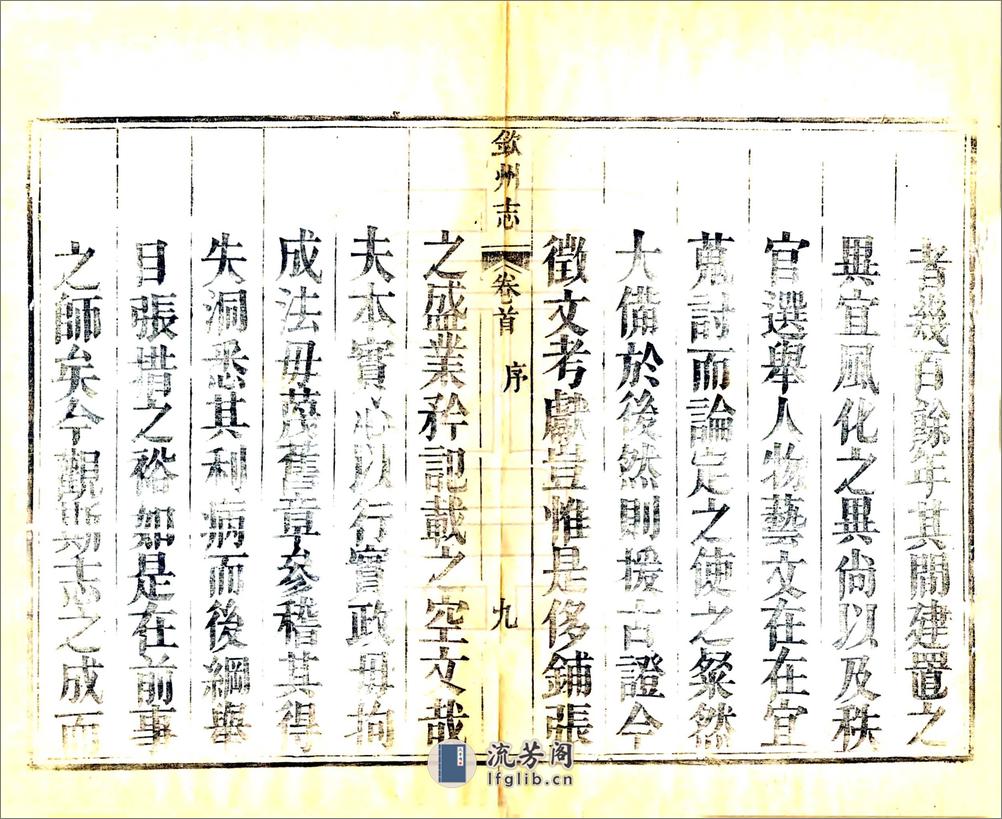 者幾百餘年其間建置之
異宜風化之異尚以及秩
官選舉人物藝文在在宜
蒐討而論定之使之粲然
大備於後然則援古證今
徵文考獻豈惟是侈鋪張
欽州志 卷首 序 九
之盛業矜記載之空文哉
夫本實心以行實政毋拘
成法毋蔑舊章參稽其得
失洞悉其利病而後綱舉
目張措之裕如是在前事
之師矣今觀斯志之成而
流芳阁
lfglib.cn